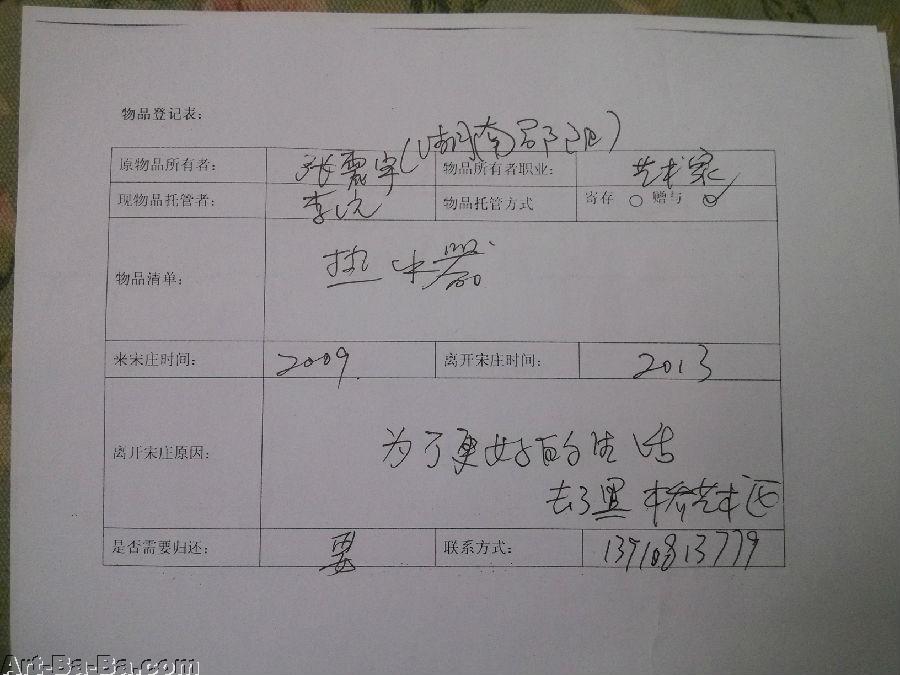 物品登记表：
原物品所有者： 张震宇（湖南邵阳） 物品所有者职业： 艺术家
现物品托管者： 李 物品托管方式 寄存 ○ 赠与 ○✓
物品清单： 热水器
来宋庄时间： 2009 离开宋庄时间： 2013
离开宋庄原因： 为了更好的生活
去了黑桥艺术区
是否需要归还： 要 联系方式： 13910813779
Art-Ba-Ba.com